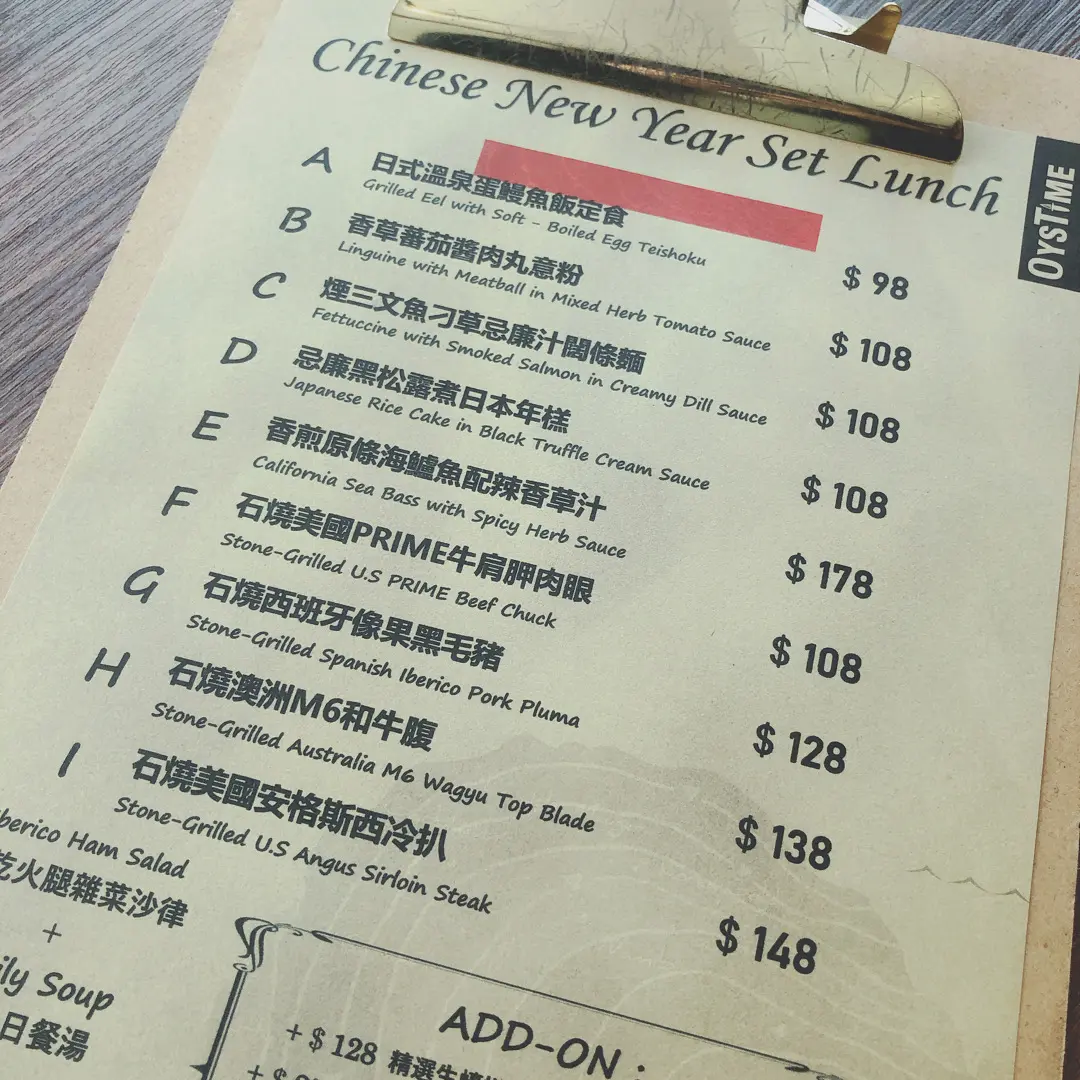 Chinese New Year Set Lunch
OYSTIME
A 日式溫泉蛋鰻魚飯定食
Grilled Eel with Soft - Boiled Egg Teishoku
$ 98
B 香草蕃茄醬肉丸意粉
Linguine with Meatball in Mixed Herb Tomato Sauce
$ 108
C 煙三文魚刁草忌廉汁闊條麵
Fettuccine with Smoked Salmon in Creamy Dill Sauce
$ 108
D 忌廉黑松露煮日本年糕
Japanese Rice Cake in Black Truffle Cream Sauce
$ 108
E 香煎原條海鱸魚配辣香草汁
California Sea Bass with Spicy Herb Sauce
$ 178
F 石燒美國PRIME牛肩胛肉眼
Stone-Grilled U.S PRIME Beef Chuck
$ 108
G 石燒西班牙像果黑毛豬
Stone-Grilled Spanish Iberico Pork Pluma
$ 128
H 石燒澳洲M6和牛腹
Stone-Grilled Australia M6 Wagyu Top Blade
$ 138
I 石燒美國安格斯西冷扒
Stone-Grilled U.S Angus Sirloin Steak
$ 148
Ham Salad
火腿雜菜沙律
+
Soup
日餐湯
ADD-ON :
+ $ 128 精選生蠔